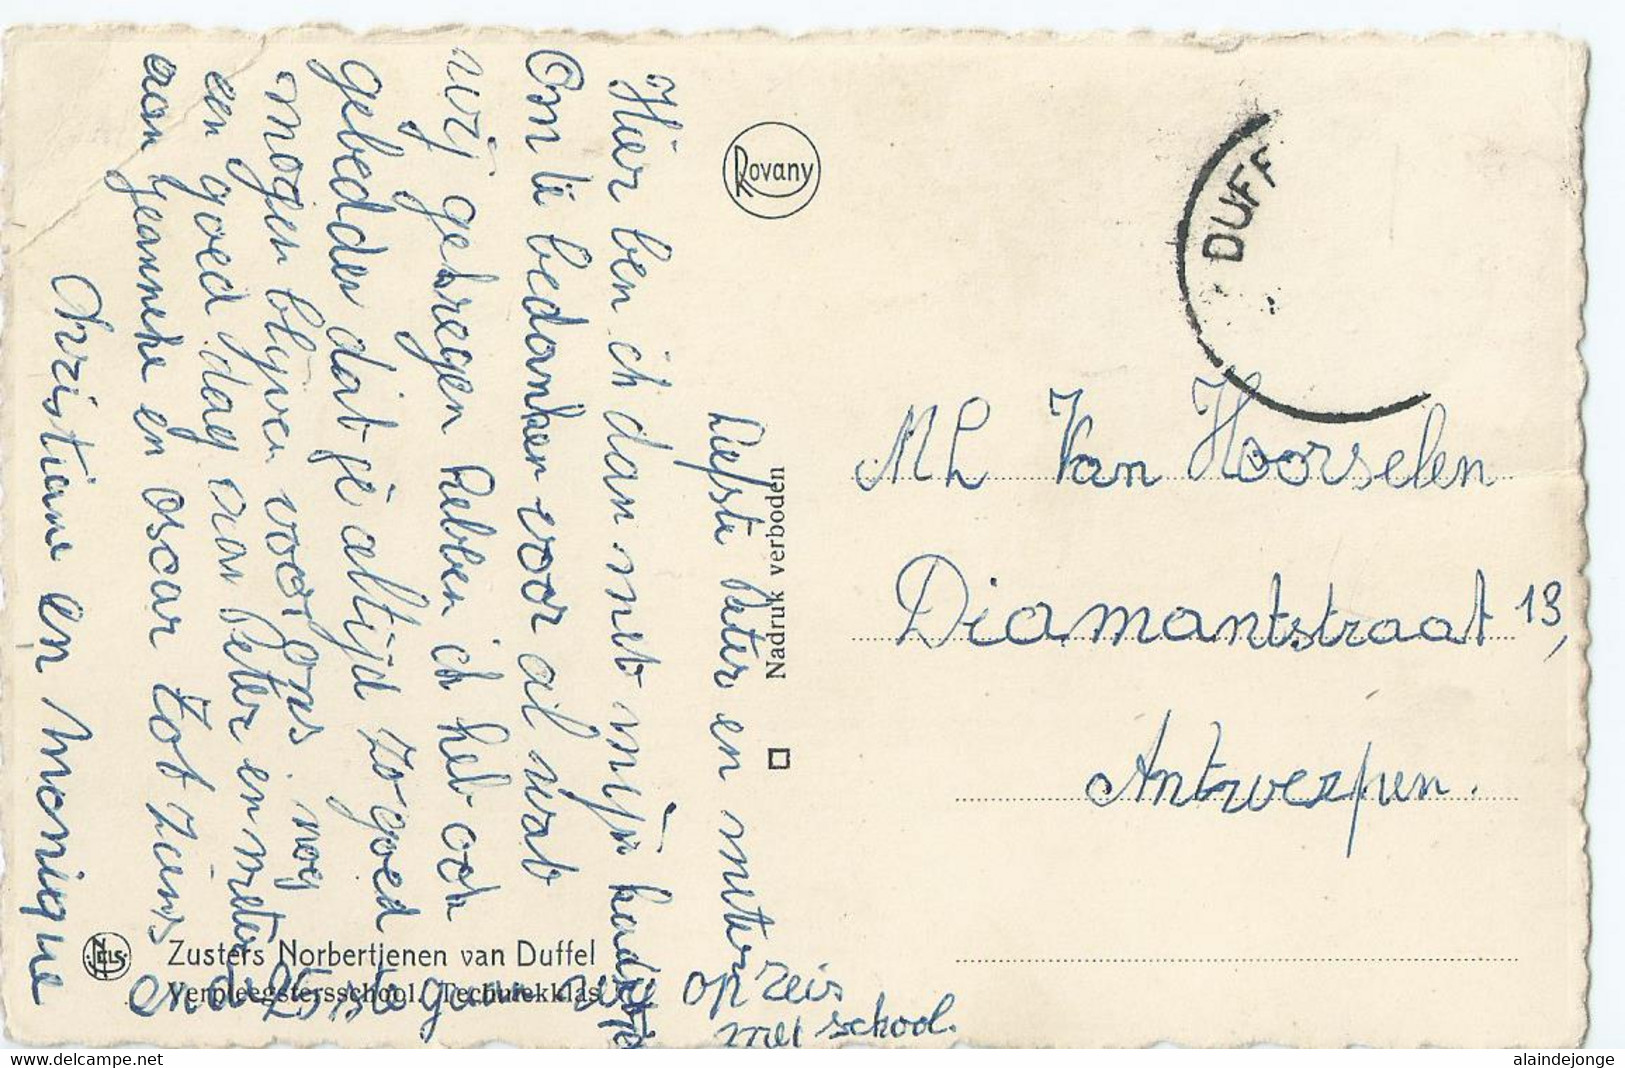 Liefste Peter en meter
Hier ben ik dan met mijn kaartje
Om te bedanken voor al wat
wij gekregen hebben ik heb ook
gebedden dat je altijd zo goed
mogen blijven voor Ons nog
een goed dag aan Peter en meter
aan Jeanneke en oscar tot ziens
Christiane en Monique
op reis
met school.
Rovany
Nadruk verboden
NELS
Zusters Norbertienen van Duffel
Verpleegstersschool. Techniekklas
DUFF
Ml Van Hoorselen
Diamantstraat 13,
Antwerpen.
alaindejonge